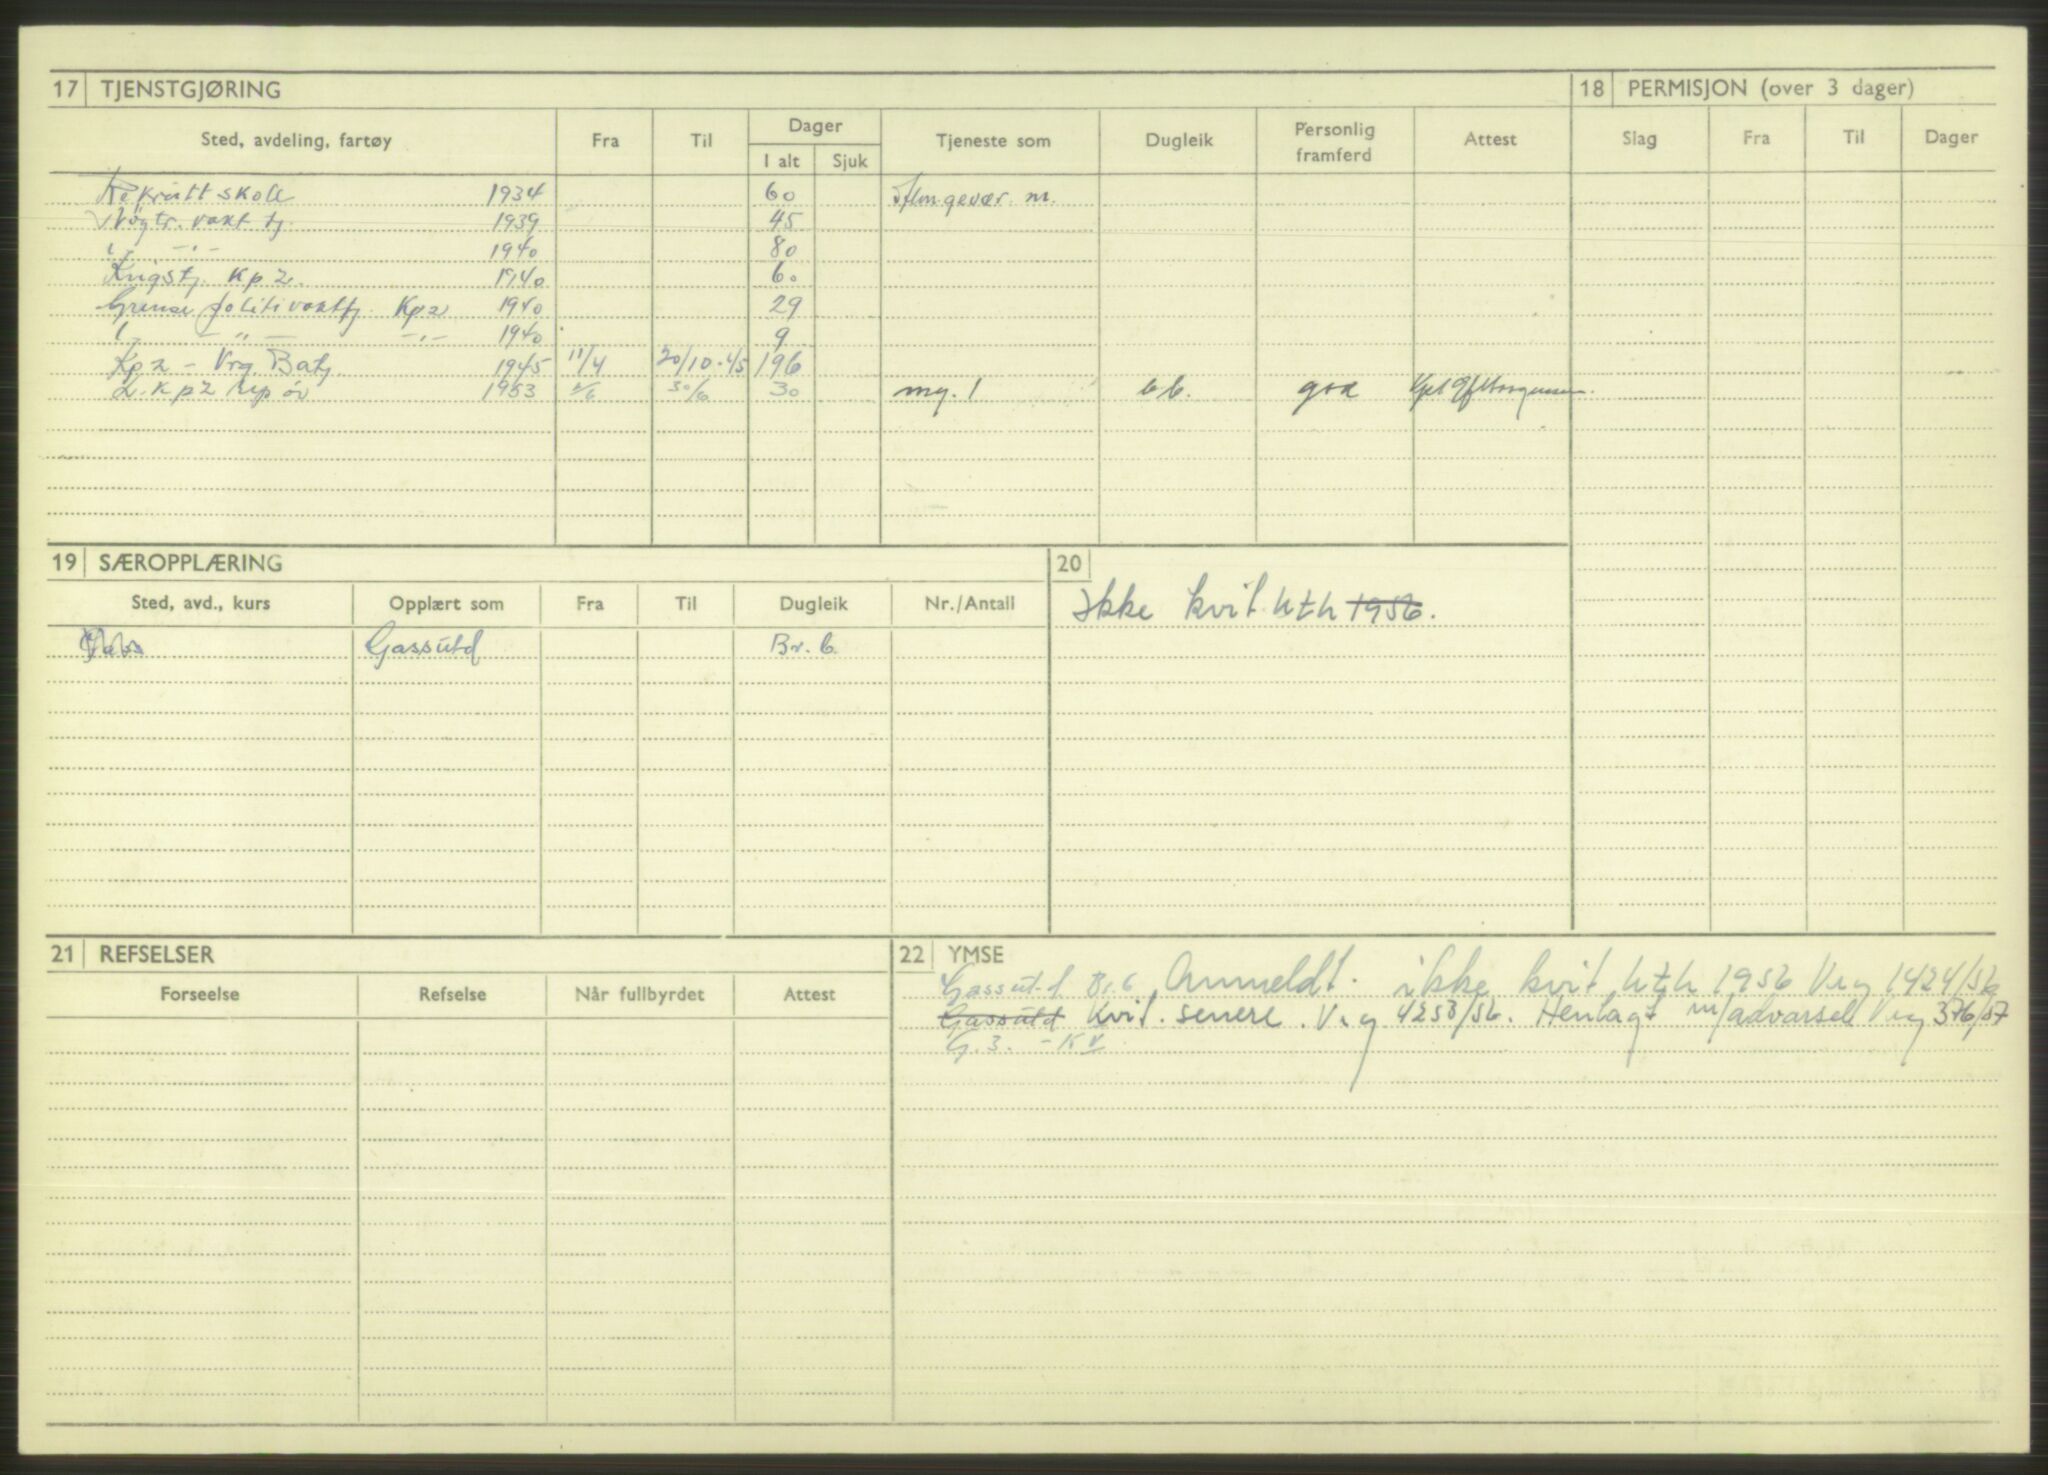 17 TJENSTGJØRING
18 PERMISJON (over 3 dager)
Sted, avdeling, fartøy Fra Til Dager I alt Sjuk Tjeneste som Dugleik Personlig framferd Attest
Slag Fra Til Dager
Rekruttskole 1934 60 gevær. m.
Nøytr. vakt tj. 1939 45
" -"- 1940 80
Krigstj. Kp 2. 1940 60
Grense politivakttj. Kp 2 1940 29
" - " - -"- 1940 9
Kp 2 - Vrg. Batj. 1945 11/4 20/10-45 196
L. Kp 2 rep øv 1953 1/6 30/6 30 mg. 1 b b. god
19 SÆROPPLÆRING
20
Sted, avd., kurs Opplært som Fra Til Dugleik Nr./Antall
Ikke kvit. h t h 1956.
Gassutd Br. b.
21 REFSELSER
22 YMSE
Forseelse Refselse Når fullbyrdet Attest
Gassutd Br. b Anmeldt. ikke kvit h t h 1956 V.ey 1424/56
Gassutd Kvit. senere. V.ey 4253/56. Henlagt m/advarsel V.ey 376/57
G. 3. - K V